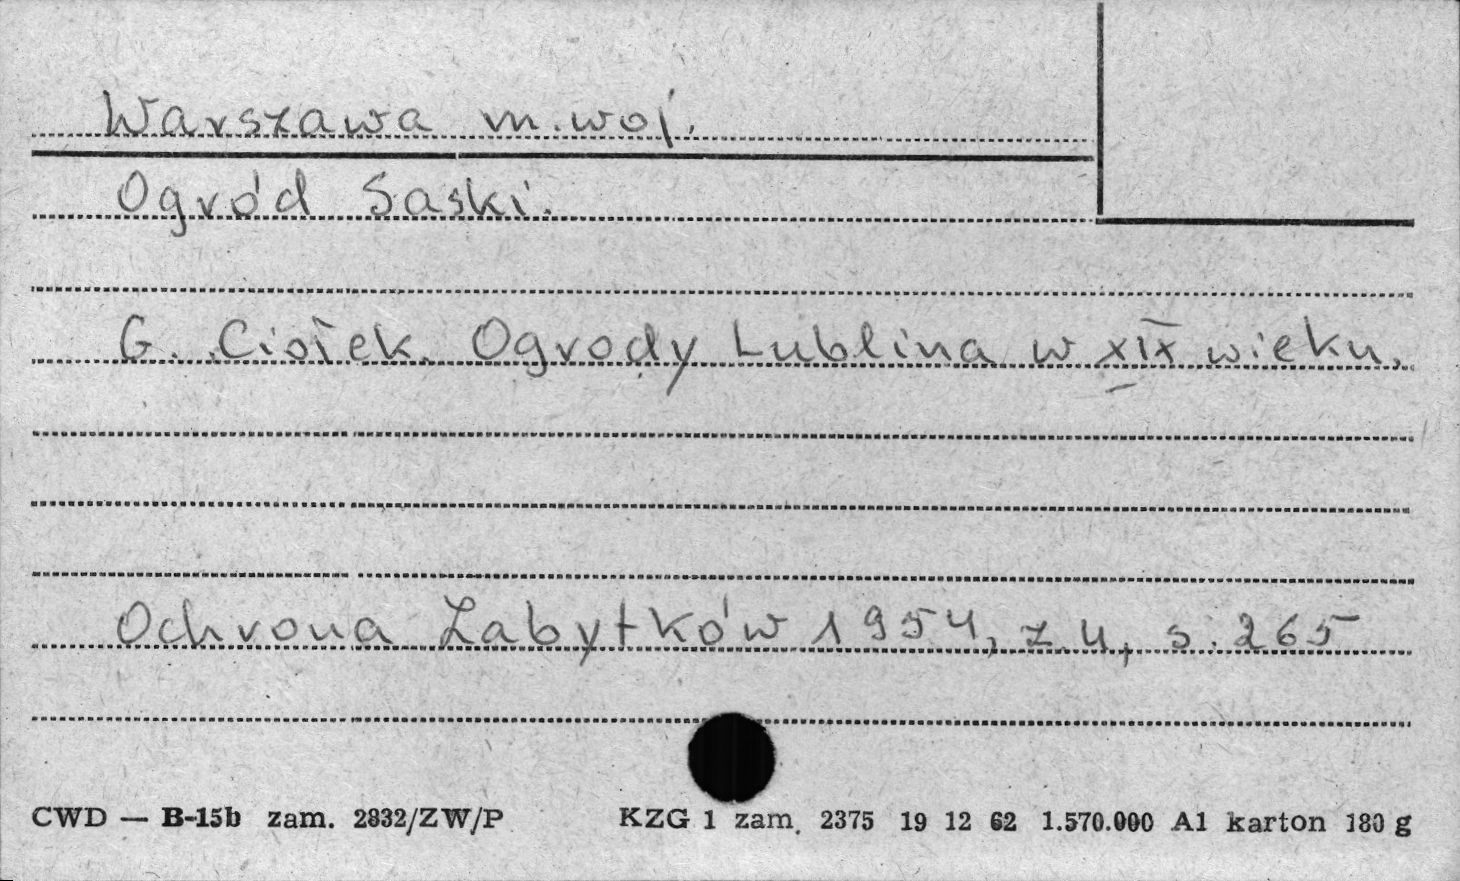 Warszawa m. woj.
Ogród Saski.
G. Ciołek. Ogrody Lublina w XIX wieku.
Ochrona Zabytków 1954, z. 4, s. 265
CWD — B-15b zam. 2832/ZW/P KZG 1 zam. 2375 19 12 62 1.570.000 A1 karton 180 g